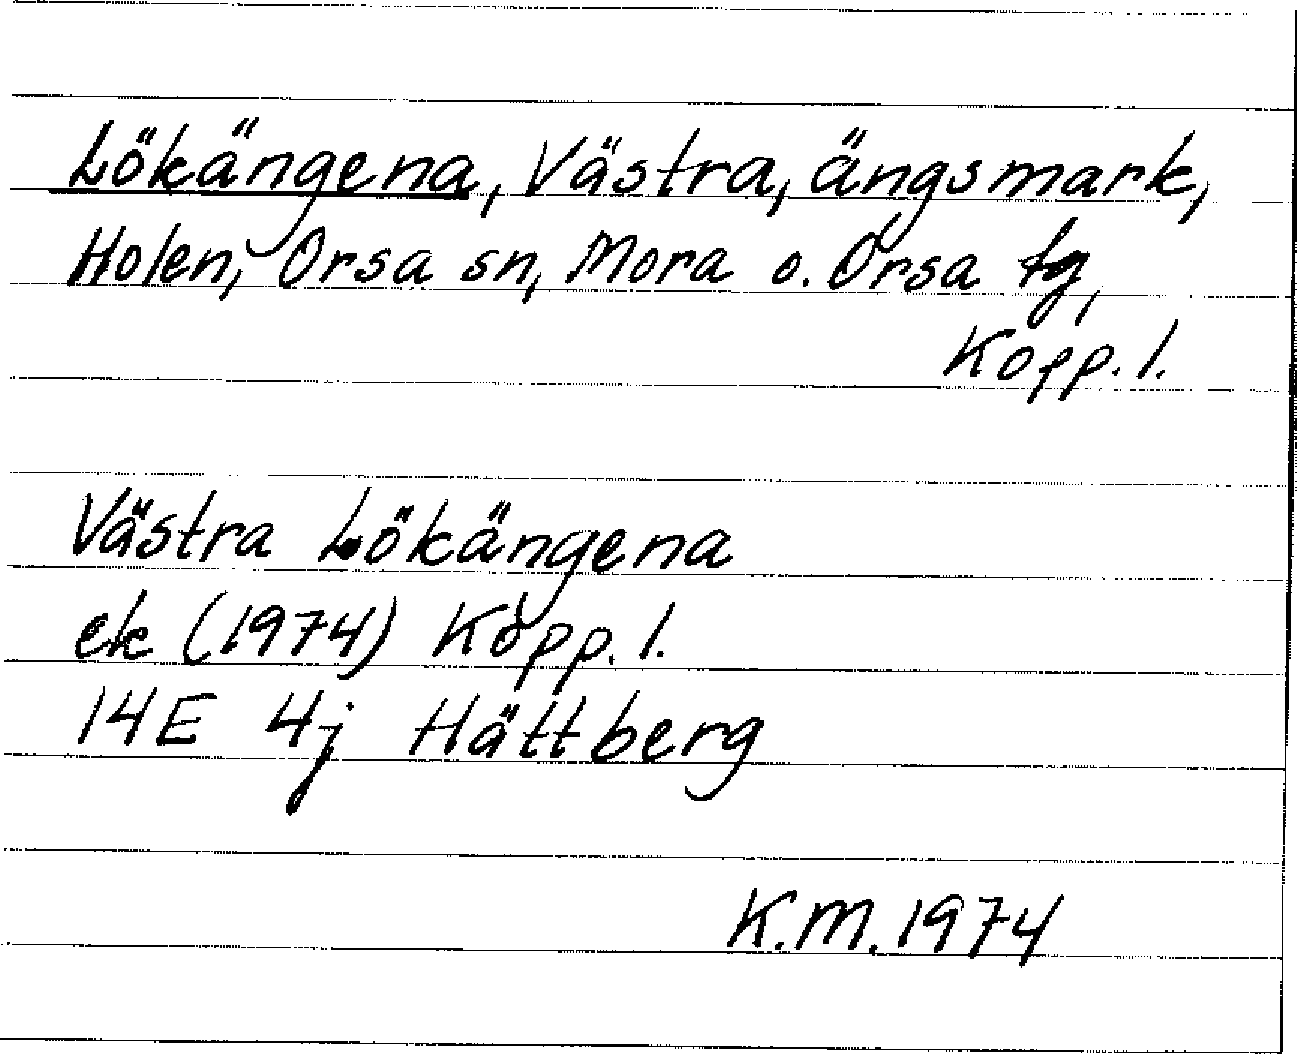 Lökängena, Västra, ängsmark,
Holen, Orsa sn, Mora o. Orsa tg,
Kopp. l.
Västra Lökängena
ek (1974) Kopp. l.
14E 4j Hättberg
K.M. 1974